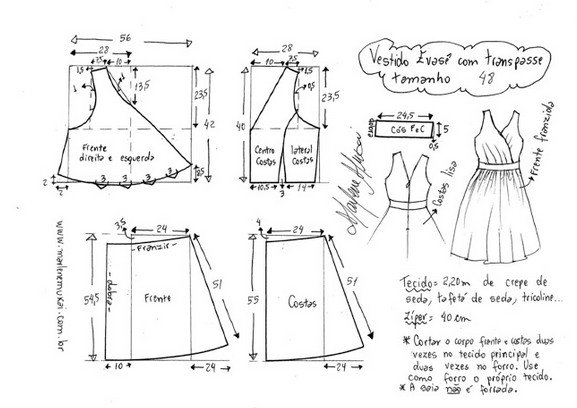 Vestido Evasê com transpasse
tamanho 48
56
28
3,5
10
1,5
13,5
23,5
42
Frente
direita e esquerda
3
3
3
3
2
2
28
10
3,5
23,5
40
Centro
Costas
lateral
costas
10,5
3
14
24,5
Cós F e C
5
0,5
Costas lisa
Frente franzida
Marlene Mukai
www.marlenemukai.com.br
3,5
24
- Franzir -
54,5
- dobra -
Frente
51
10
24
4
24
55
Costas
51
24
Tecido: 2,20m de crepe de
seda, tafetá de seda, tricoline...
Zíper: 40 cm
* Cortar o corpo frente e costas duas
vezes no tecido principal e
duas vezes no forro. Use
como forro o próprio tecido.
* A saia não é forrada.